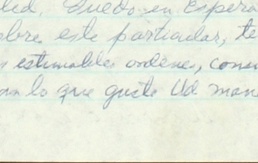 Quedo en Espera
este particular, te
estimables ordenes, como
lo que guste Ud man